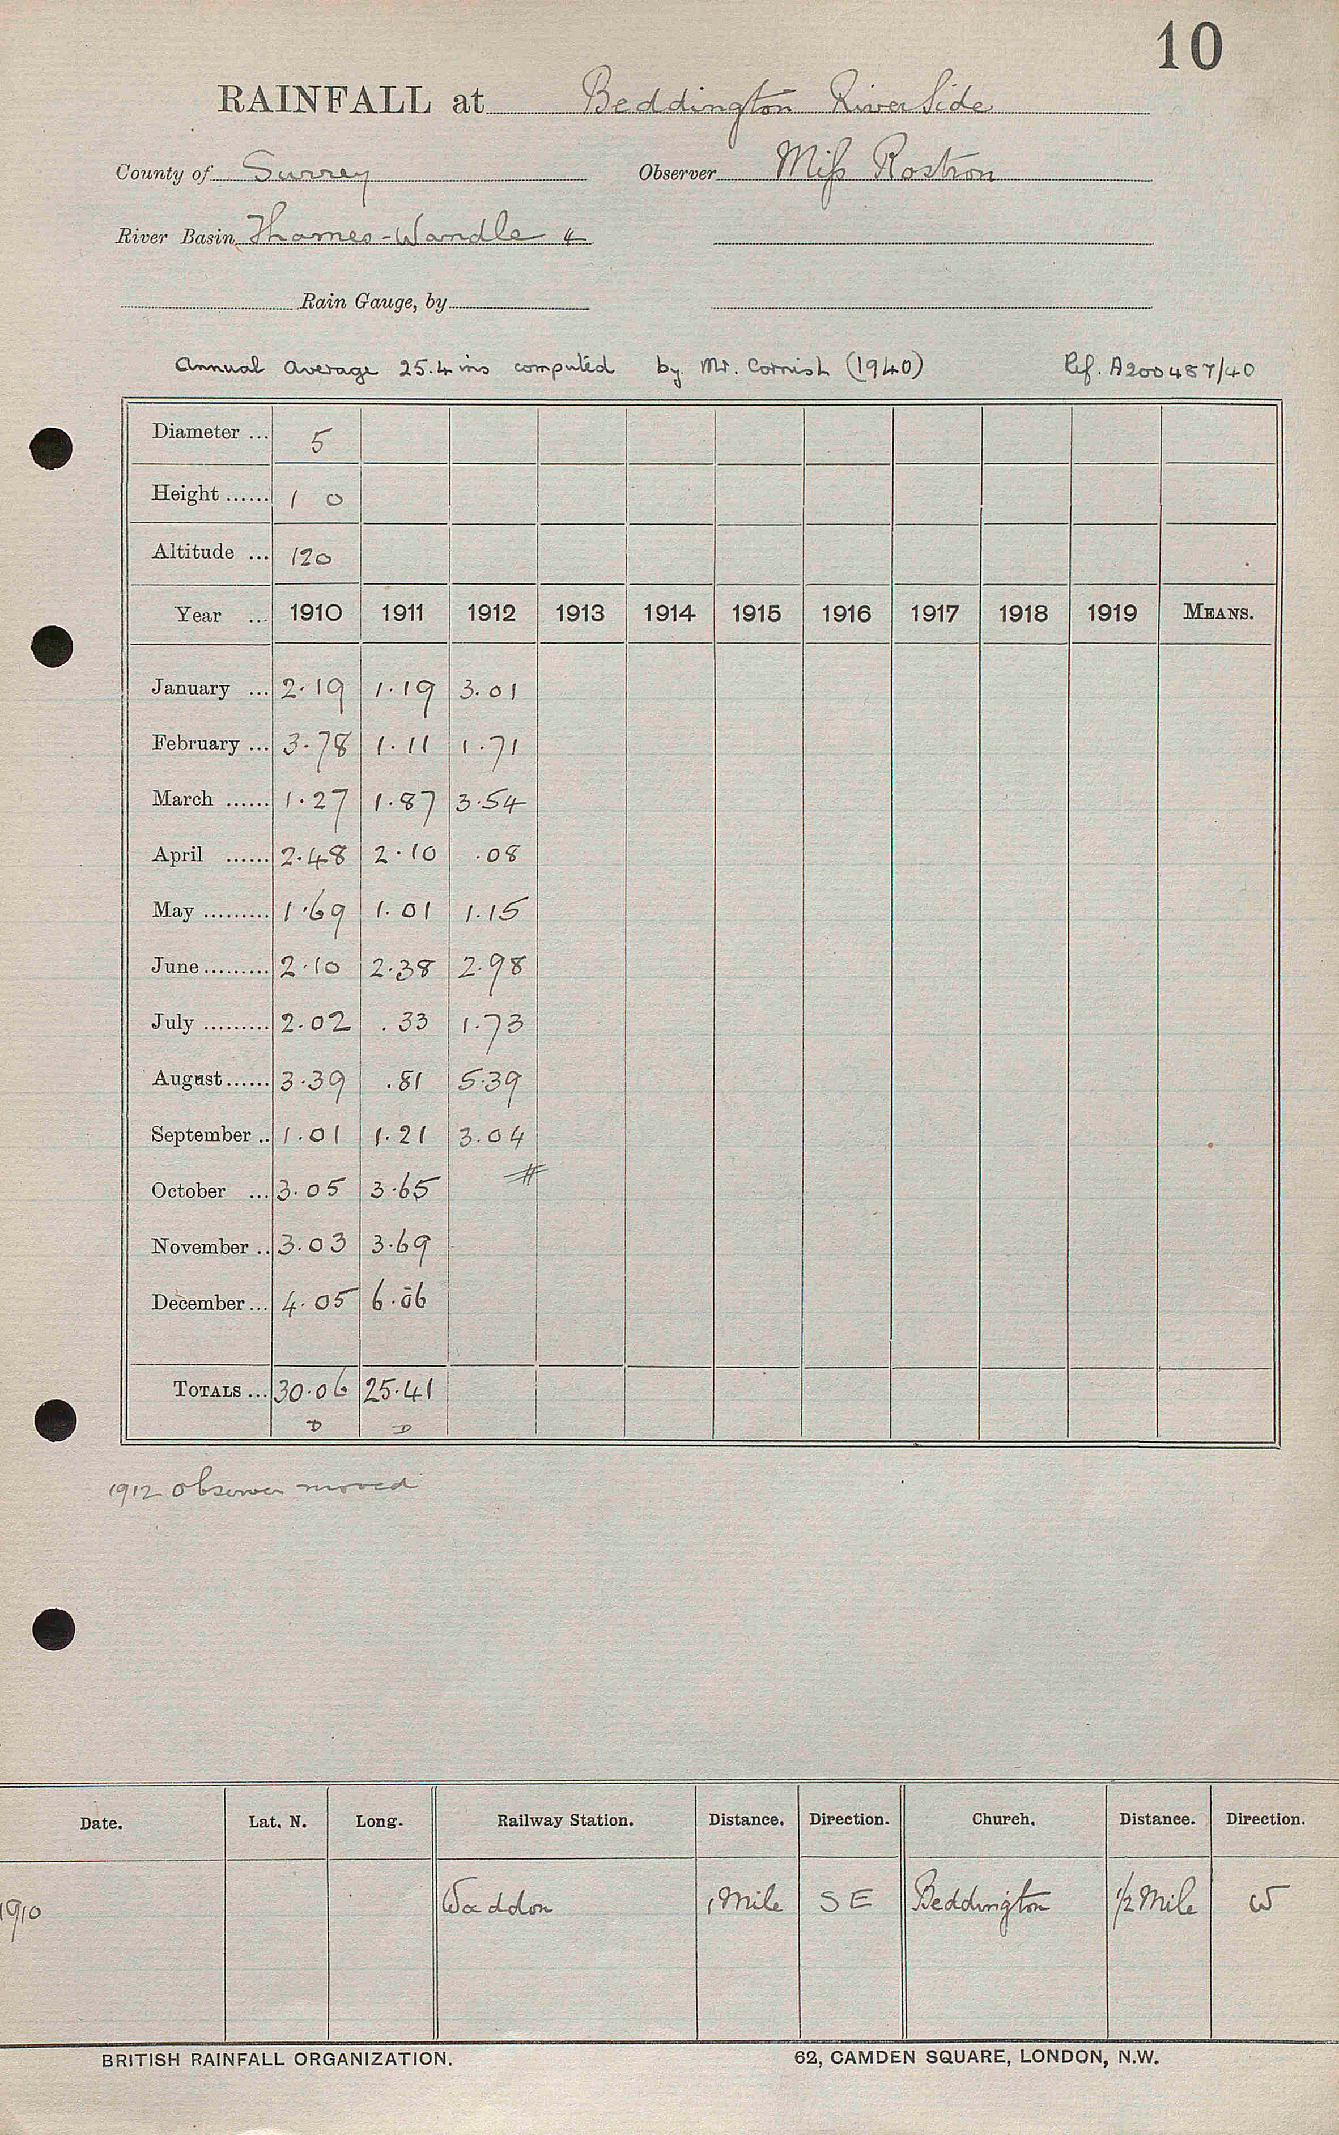 10
RAINFALL at Beddington Riverside
County of Surrey Observer Miss Rostron
River Basin Thames-Wandle 4
Rain Gauge, by
Annual Average 25.4 ins computed by Mr. Cornish (1940) Ref. A200487/40
Diameter ... 5
Height ...... 1 0
Altitude ... 120
Year ... 1910 1911 1912 1913 1914 1915 1916 1917 1918 1919 MEANS.
January ... 2.19 1.19 3.01
February ... 3.78 1.11 1.71
March ...... 1.27 1.87 3.54
April ...... 2.48 2.10 .08
May ......... 1.69 1.01 1.15
June ......... 2.10 2.38 2.98
July ......... 2.02 .33 1.73
August ...... 3.39 .81 5.39
September .. 1.01 1.21 3.04
October ... 3.05 3.65 #
November .. 3.03 3.69
December ... 4.05 6.06
TOTALS ... 30.06 25.41
D D
1912 Observer moved
Date. Lat. N. Long. Railway Station. Distance. Direction. Church. Distance. Direction.
1910 Waddon 1 Mile S E Beddington 1/2 Mile W
BRITISH RAINFALL ORGANIZATION. 62, CAMDEN SQUARE, LONDON, N.W.